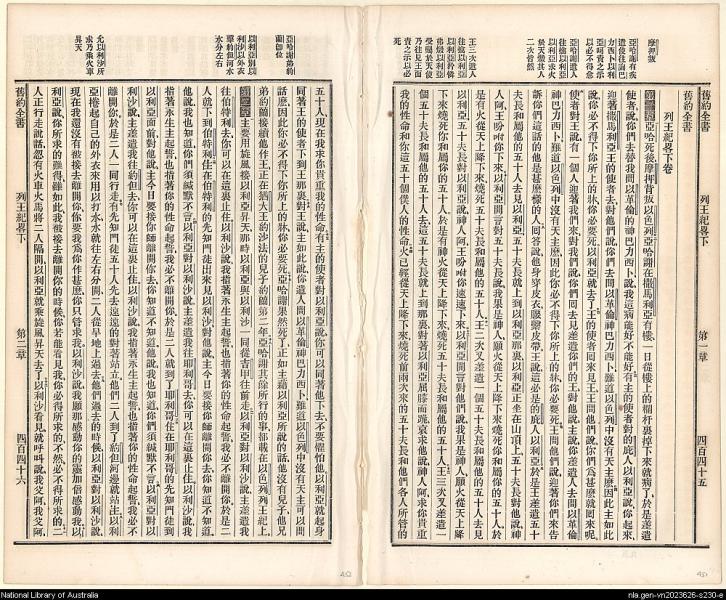 舊約全書
列王紀畧下
第一章
四百四十五
摩押叛
亞哈謝有疾
遣使往詢巴
力西卜以利
亞呵責之示
以必不得愈
亞哈謝遣人
往捕以利亞
以利亞求火
於天燬其人
二次皆然
王三次遣人
往捕以利亞
列王紀畧下卷
第一章亞哈死後摩押背叛以色列亞哈謝在撒馬利亞有樓一日從樓上的欄杆裏掉下來就病了於是差遣
使者說你們去替我問以革倫的神巴力西卜說我這病能好不能好有主的使者對的庇人以利亞說你起來
迎著撒馬利亞王的使者去對他們說你們去問以革倫神巴力西卜難道以色列中沒有天主麽因此主如此
說你必不得下你所上的牀你必要死以利亞就去了王的使者回來見王王問他們說你們爲甚麽就回來呢
使者對王說有一個人迎著我們來對我們說你們回去見差遣你們的王對他說主說你差遣人去問以革倫
神巴力西卜難道以色列中沒有天主麽因此你必不得下你所上的牀你必要死王問他們說迎著你們來告
訴你們這話的是甚麽樣的人回答說他身穿皮衣腰繫皮帶王說這必是的庇人以利亞於是王差遣五十
夫長和屬他的五十人去見以利亞五十夫長就上到以利亞那裏以利亞正坐在山頂上五十夫長對他說神
人阿王吩咐你下來以利亞回答五十夫長說我果是神人願火從天上降下來燒死你和屬你的五十人於
是有火從天上降下來燒死五十夫長和屬他的五十人王二次又差遣一個五十夫長和屬他的五十人去見
以利亞五十夫長對以利亞說神人阿王吩咐你速速下來以利亞回答他們說我果是神人願火從天上降
下來燒死你和屬你的五十人於是有神火從天上降下來燒死五十夫長和屬他的五十人王三次又差遣一
個五十夫長和屬他的五十人去這五十夫長就上到那裏對著以利亞屈膝而跪哀求他說神人阿求你貴重
我的性命和你這五十個僕人的性命已經從天上降下來燒死前兩次來的五十夫長和他們各人所管的
舊約全書
列王紀畧下
第二章
四百四十六
亞哈謝薨約
蘭卽位
以利亞別以
利沙以外衣
擊約但河水
水分左右
允以利沙所
求乃乘火車
昇天
五十人現在我求你貴重我的性命有主的使者對以利亞說你可以同著他下去不要懼怕他以利亞就起身
同著王的使者下到王那裏對王說主如此說你差遣人問以革倫神巴力西卜難道以色列中沒有天主可以問
話麽因此你必不得下你所上的牀你必要死亞哈謝果然死了正如主藉以利亞所說的話他沒有兒子他兄
弟約蘭接續他作王正在猶大王約沙法的兒子約蘭第二年亞哈謝其餘所行的事都載在以色列列王紀上
第二章主要用旋風接以利亞昇天那時以利亞與以利沙一同從吉甲往前走以利亞對以利沙說主差遣我
往伯特利去你可以在這裏止住以利沙說我指著永生主起誓也指著你的性命起誓我必不離開你於是二
人就下到伯特利住在伯特利的先知門徒出來見以利沙對他說主今日要接你師離開你去你知道不知道
他說我也知道你們須緘默不言以利亞對以利沙說主差遣我往耶利哥去你可以在這裏止住以利沙說我
指著永生主起誓也指著你的性命起誓我必不離開你於是二人就到了耶利哥住在耶利哥的先知門徒到
以利沙面前對他說主今日要接你師離開你去你知道不知道他說我也知道你們須緘默不言以利亞對以
利沙說主差遣我往約但去你可以在這裏止住以利沙說我指著永生主起誓也指著你的性命起誓我必不
離開你於是二人一同行走有先知門徒五十人先去遠遠的對著站立他們二人到了約但河邊就站住以利
亞捲起自己的外衣來用以打水水就往左右分開二人從旱地上過去他們過去的時候以利亞對以利沙說
現在我還沒有被接去離開你你要我爲你作甚麽你只管求我以利沙說我願那感動你的靈加倍感動我以
利亞說你所求的難得雖如此我被接去離開你的時候你若能看見我你必得所求的不然必不得所求的二
人正行走說話忽有火車火馬將二人隔開以利亞就乘旋風昇天去了以利沙看見就呼叫說我父阿我父阿
National Library of Australia
nla.gen-vn2023626-s230-e